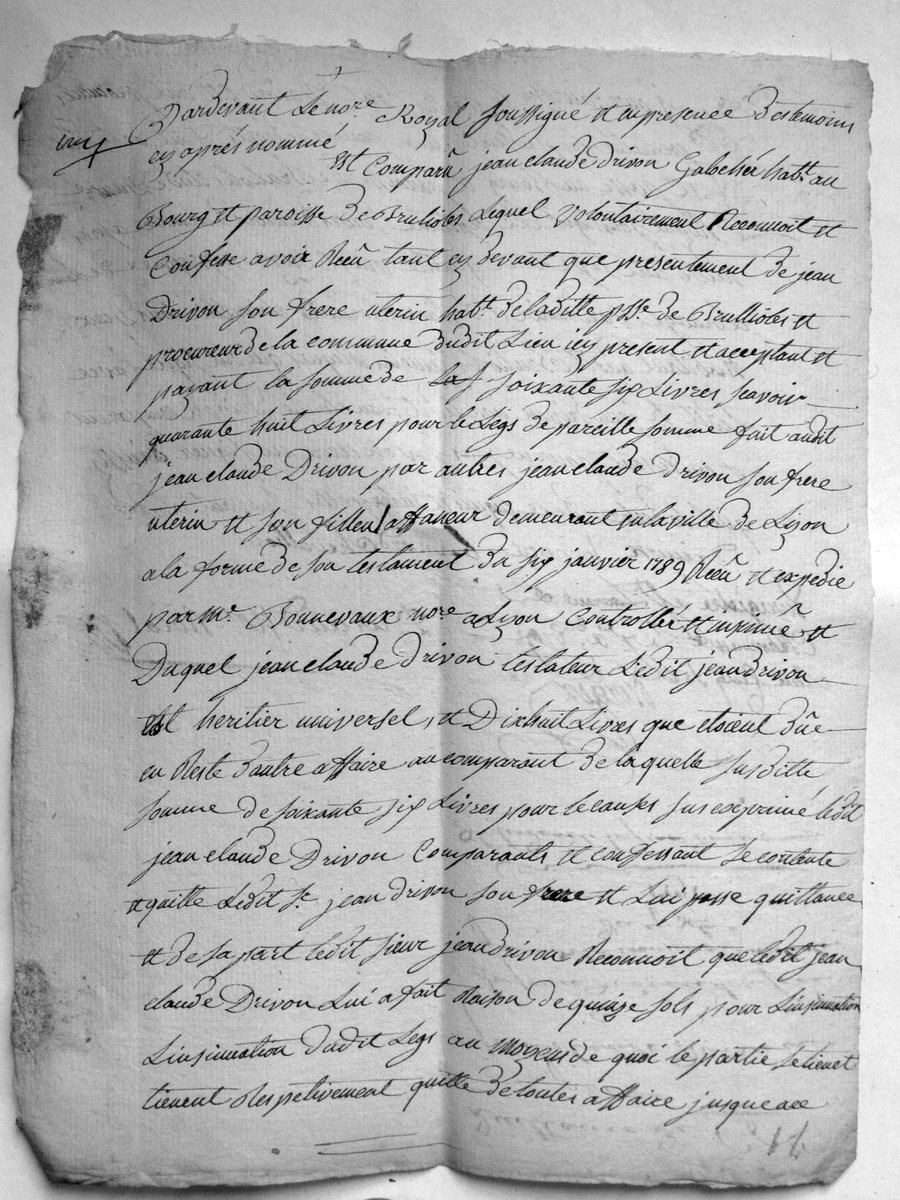 Pardevant Le nore. Royal soussigné et en presence des temoins
cy aprés nommé
est Comparû jean claude drivon habt. au
Bourg et paroisse de Brulioles Lequel volontairement Reconnoit et
Confesse avoir Reeû tant cy devant que presentement de jean
Drivon son frere uterin habt. de laditte psse. de Brullioles et
procureur de la commune dudit Lieu icy present et acceptant et
payant la somme de soixante six Livres scavoir
quarante huit Livres pour le Legs de pareille somme fait audit
jean claude Drivon par autres jean claude drivon son frere
uterin et son filleul affaneur demeurant en la ville de Lyon
a la forme de son testament du six janvier 1789 Reeû et expedie
par Me. Bonnevaux nore. a Lyon Controllér et insinué et
Duquel jean claude drivon testateur Ledit jean drivon
est heritier universel, et Dixhuit Livres que etoient dûe
en Reste dautre affaire au comparant de la quelle susditte
somme de soixante six Livres pour le causes sus exprimé ledit
jean claude Drivon Comparants et confessant se contente
et quitte Ledit Sr. jean drivon son frere et Lui passe quittance
et de sa part ledit sieur jean drivon Reconnoit que ledit jean
claude Drivon Lui a fait Raison de quinze sols pour Linsinuation
Linsinuation dudit Legs au moyens de quoi le partie se tienet
tienent Respetivement quitte de toutes affaire jusque a ce